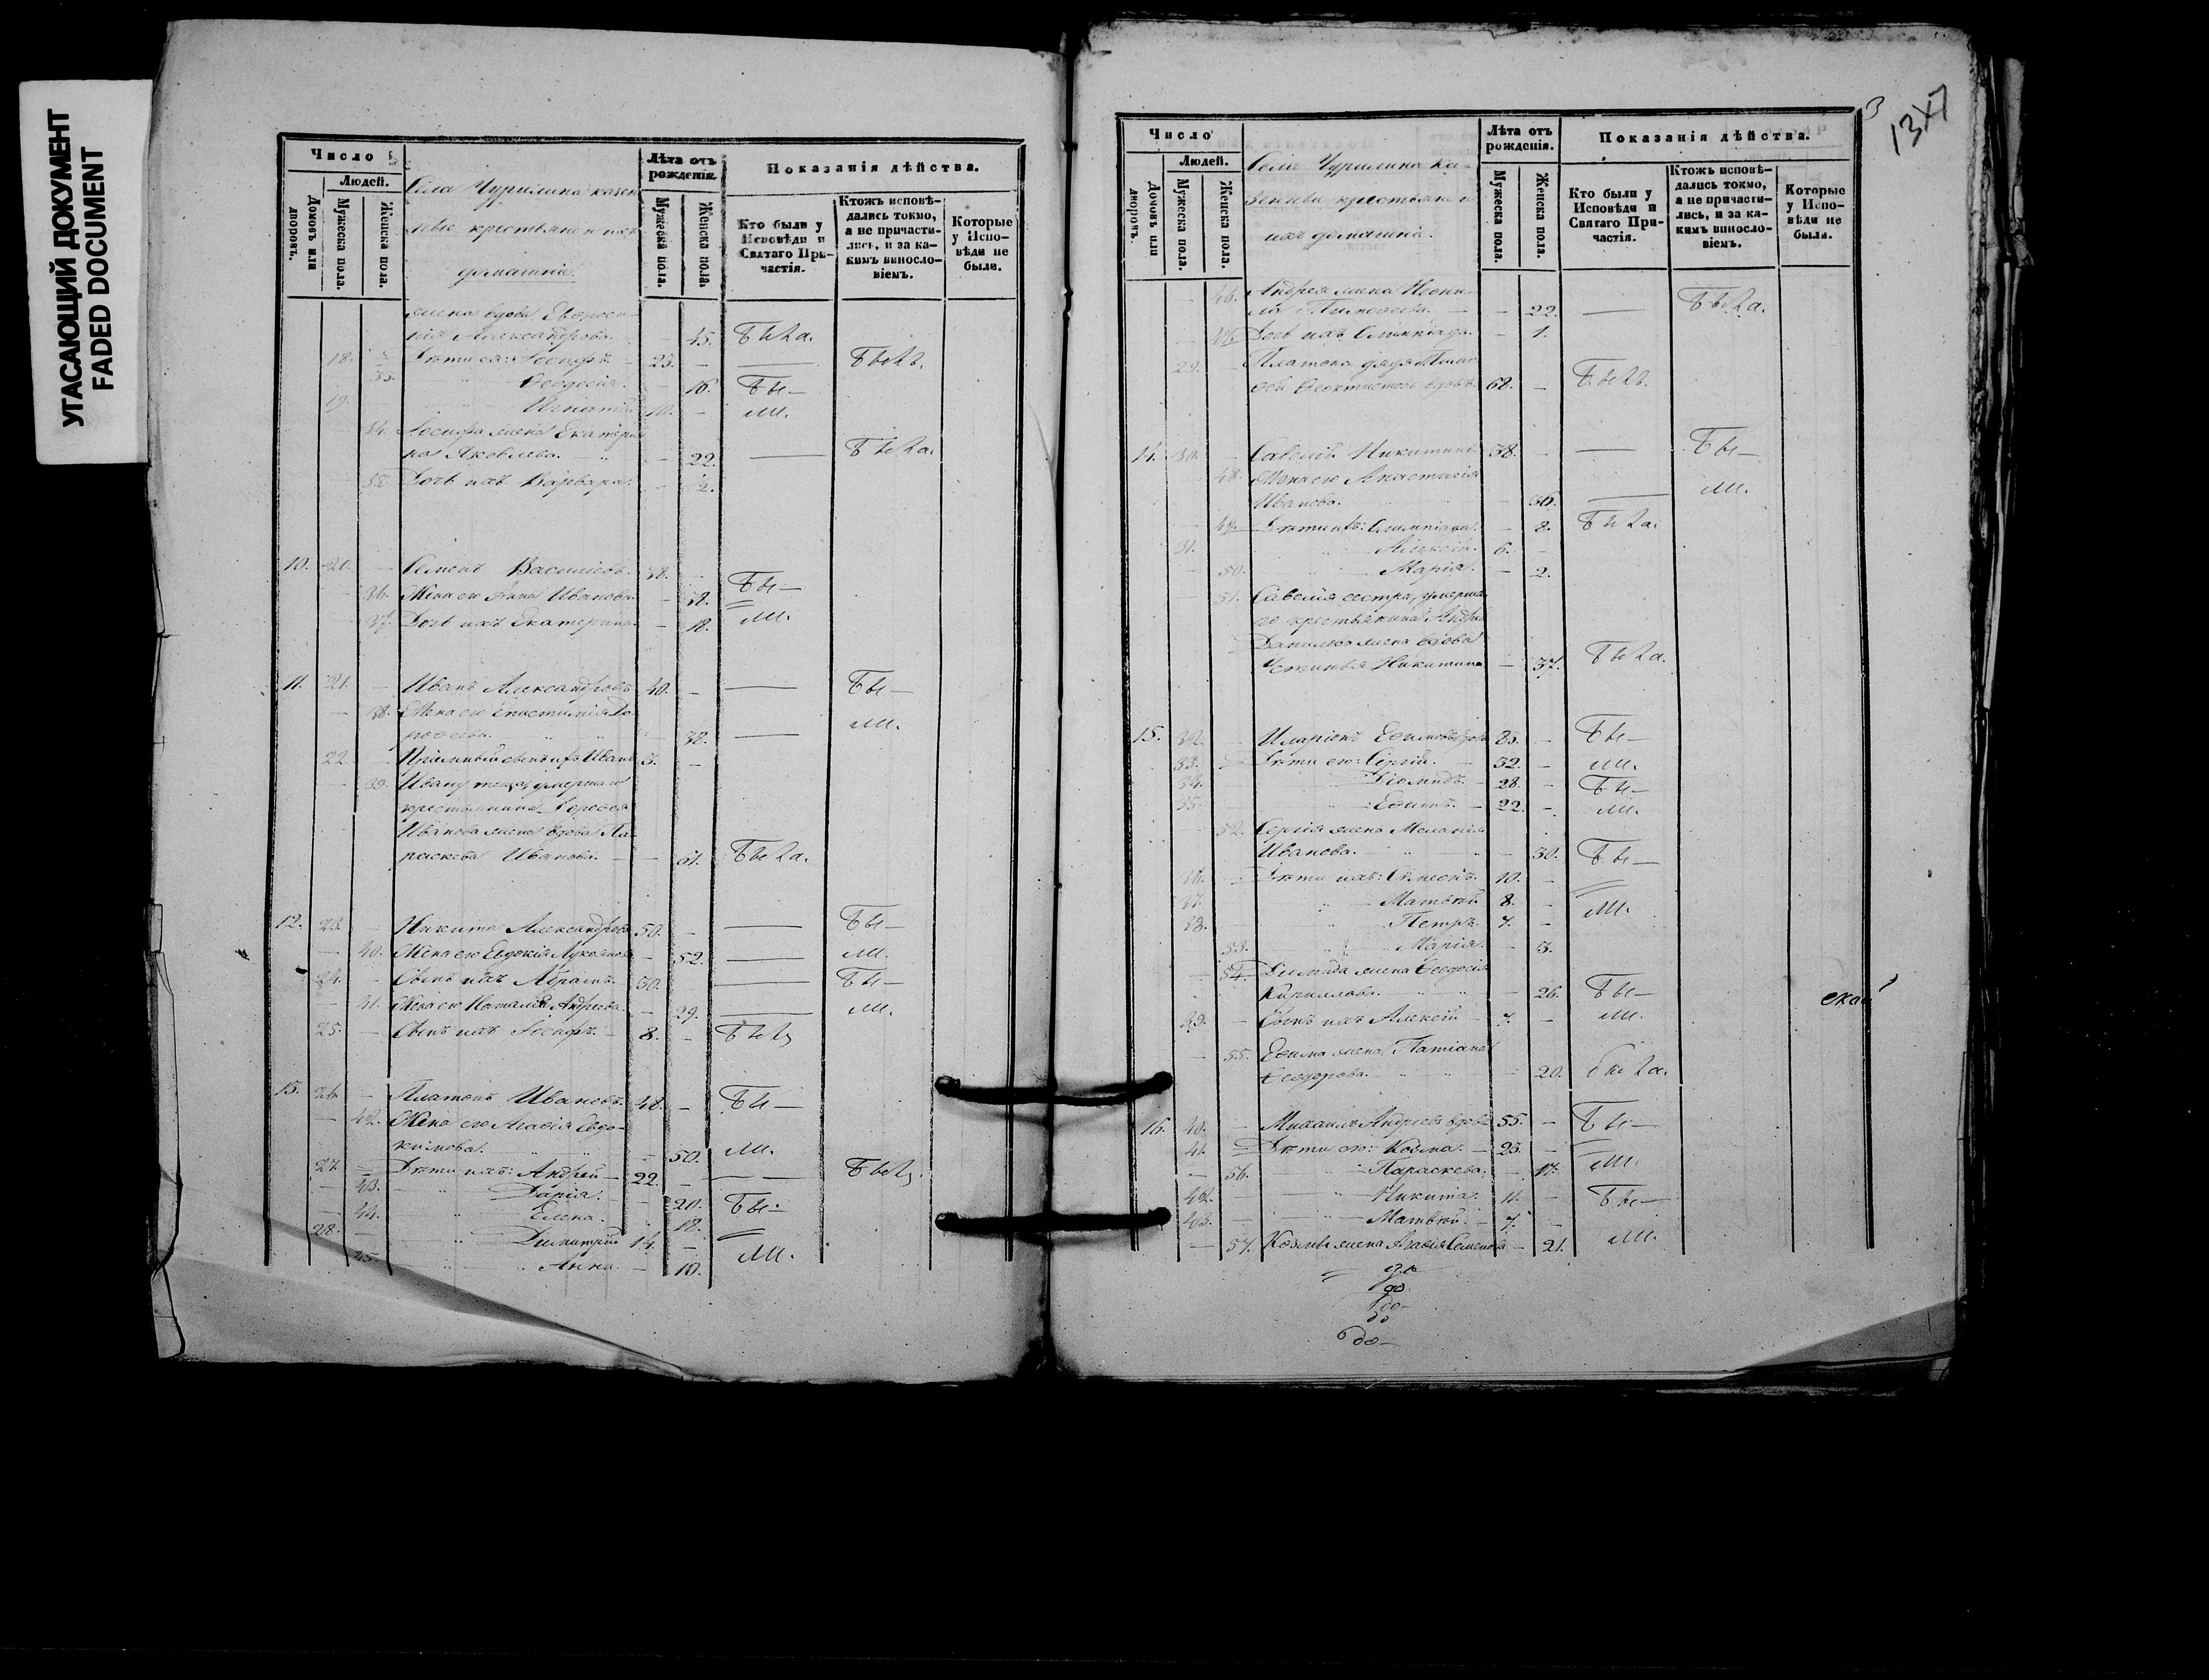 УГАСАЮЩИЙ ДОКУМЕНТ
FADED DOCUMENT
Число
Людей.
Домовъ или дворовъ.
Мужеска пола.
Женска пола.
Села Чурилина казен
ные крестьяне и ихъ
домашніе.
Лѣта отъ рожденія.
Мужеска пола.
Женска пола.
Показанія дѣйства.
Кто были у Исповѣди и Святаго Причастія.
Ктожъ исповѣдались токмо, а не причастились, и за какимъ винословіемъ.
Которые у Исповѣди не были.
жена вдова
Александрова. 45. Была
18. Дѣти ея: Іосифъ 23. — Былъ
33. Ѳеодосія. 16. Бы—
19. Игнатій 10. — ли.
34. Іосифа жена Екатери
на Яковлева. — 22. — Была
35. Дочь ихъ Варвара. 2.
10. 20. Семенъ Василіевъ. 38. Бы—
36. Жена его Анна Иванова. — 38.
37. Дочь ихъ Екатерина. — 18. ли.
11. 21. Иванъ Александровъ 40. — Бы—
38. Жена его
38. — ли.
22. Пріемный сынъ ихъ Иванъ 3. —
39. Ивану теща умершаго
крестьянина
Иванова жена вдова Па
раскева Иванова. — 61. Была
12. 23. Никита Александровъ 50. — Бы—
40. Жена его Евдокія Лукоянова — 52. — ли.
24. Сынъ ихъ Абрамъ. 30. — Бы—
41. Жена его Наталія Андреева. — 29. — ли.
25. Сынъ ихъ Іосифъ. 8. — Былъ
13. 26. Платонъ Ивановъ. 48. — Бы—
42. Жена его Агафія Евдо-
кимова. 50. ли.
27. Дѣти ихъ: Андрей — 22. — Былъ
43. Дарія. 20. Бы—
44. Елена. 18.
28. Димитрій 14. —
45. Анна. 10. ли.
3
13
Число
Людей.
Домовъ или дворовъ.
Мужеска пола.
Женска пола.
Села Чурилина ка-
зенные крестьяне и
ихъ домашніе.
Лѣта отъ рожденія.
Мужеска пола.
Женска пола.
Показанія дѣйства.
Кто были у Исповѣди и Святаго Причастія.
Ктожъ исповѣдались токмо, а не причастились, и за какимъ винословіемъ.
Которые у Исповѣди не были.
46. Андрея жена Неони-
ла Тимофеева. — 22. — Была.
47. Дочь ихъ Олимпіада. — 1.
29. Платона дядя
Ѳеоктистовъ вдовъ. 68. — Былъ.
14. 30. Савелій Никитинъ 38. — Бы—
48. Жена его Анастасія
Иванова. 36. — ли.
49. Дѣти ихъ: Олимпіада. — 8. Была.
31. Алексій. 6. —
50. Марія. — 2.
51. Савелія сестра, умерша
го крестьянина Андрея
Данилова жена вдова
Устинья Никитина — 37. Была.
15. 32. Иларіонъ Ефимовъ вдовъ 85. — Бы—
33. Дѣти его: Сергій. 32. — ли.
34. Діомидъ. 28. — Бы—
35. Ефимъ. 22. — ли.
52. Сергія жена Меланія
Иванова. — 30. Бы—
36. Дѣти ихъ: Симеонъ. 10. —
37. Матвѣй 8. — ли.
38. Петръ. 7. —
53. Марія. — 3.
54. Діомида жена Ѳеодосія
Кириллова. — 26. Бы—
39. Сынъ ихъ Алексій 7. — ли.
55. Ефима жена Татіана
Ѳеодорова. 20. Была.
16. 40. Михаилъ Андреевъ вдовъ 55. — Бы—
41. Дѣти его: Козма. 23. —
56. Параскева. — 17. ли.
42. Никита. 11. — Бы—
43. Матвѣй. 7. —
57. Козмы жена Агафія Семенова — 21. ли.